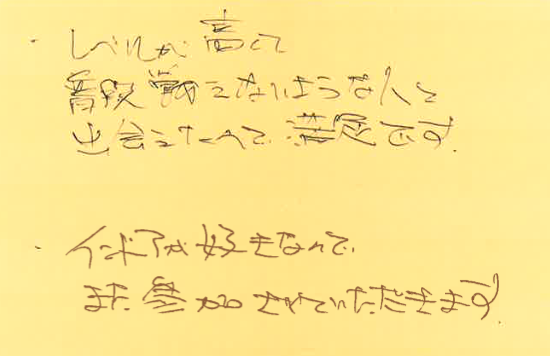 ・レベルが高くて
普段覚えないような人と
出会えたので満足です。
・インドアが好きなので、
また参加させていただきます。